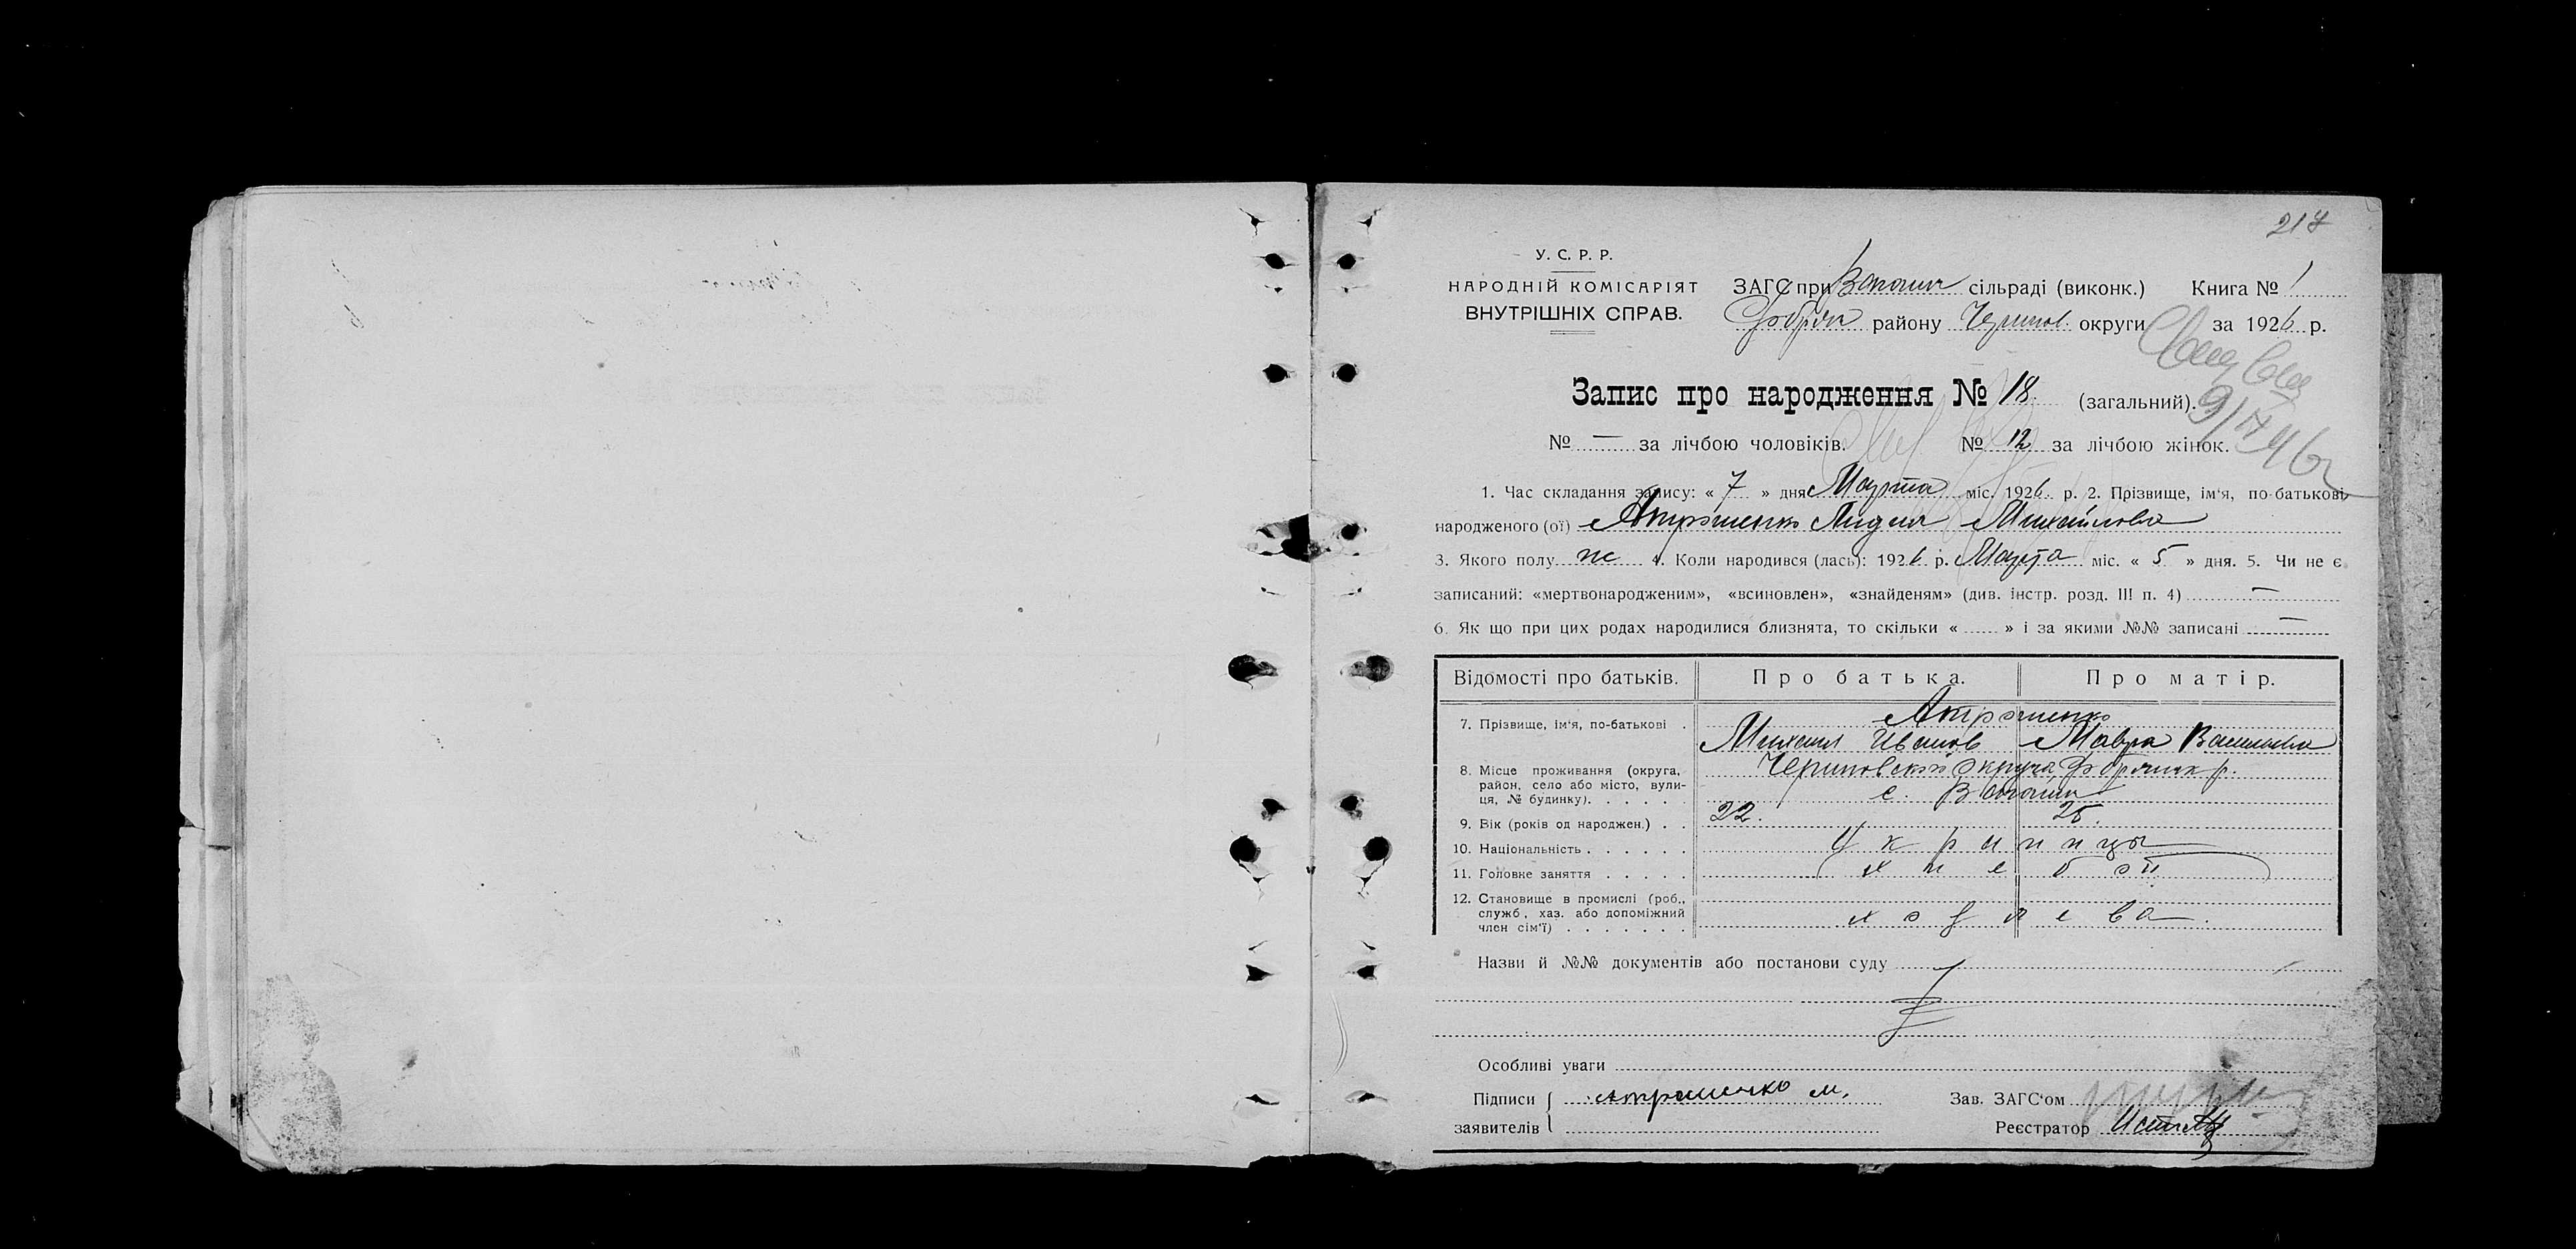 217
У. С. Р. Р.
НАРОДНІЙ КОМІСАРІЯТ
ВНУТРІШНІХ СПРАВ.
ЗАГС при сільраді (виконк.) Книга № 1
району Чернигов. округи за 1926 р.
Запис про народження № 18. (загальний).
№ — за лічбою чоловіків. № 12 за лічбою жінок.
1. Час складання запису: « 7 » дня Марта міс. 1926 р. 2. Прізвище, ім'я, по-батькові
народженого (ої) Атрошенко Лидия Михайлова
3. Якого полу ж 4. Коли народився (лась): 1926 р. Марта міс. « 5 » дня. 5. Чи не є
записаний: «мертвонародженим», «всиновлен», «знайденям» (див. інстр. розд. III п. 4) —
6. Як що при цих родах народилися близнята, то скільки « » і за якими №№ записані —
Відомості про батьків. Про батька. Про матір.
7. Прізвище, ім'я, по-батькові . Атрошенко
Михаил Иванов Мавра Васильевна
8. Місце проживання (округа, район, село або місто, вулиця, № будинку). Черниговской округа р.
с.
9. Вік (років од народжен.) . . 22. 25.
10. Національність . . . . . . Украинцы
11. Головне заняття . . . . . хлебоп
12. Становище в промислі (роб., служб, хаз. або допоміжний член сім'ї) . . . . . . .
Назви й №№ документів або постанови суду
Особливі уваги
Підписи заявителів Атрошенко М.
Зав. ЗАГС'ом
Реєстратор